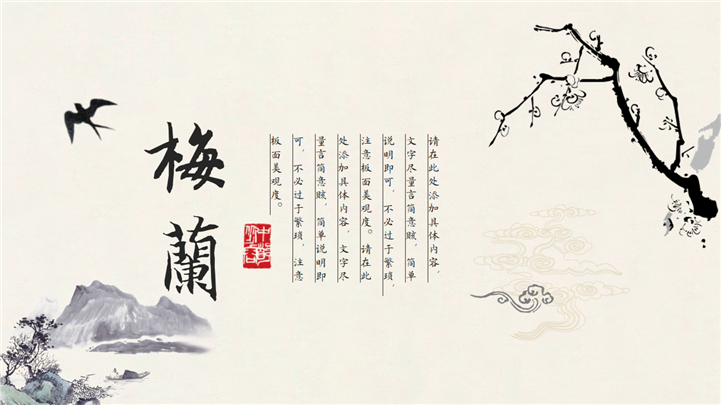 梅蘭
请在此处添加具体内容，
文字尽量言简意赅，简单
说明即可，不必过于繁琐，
注意板面美观度。请在此
处添加具体内容，文字尽
量言简意赅，简单说明即
可，不必过于繁琐，注意
板面美观度。